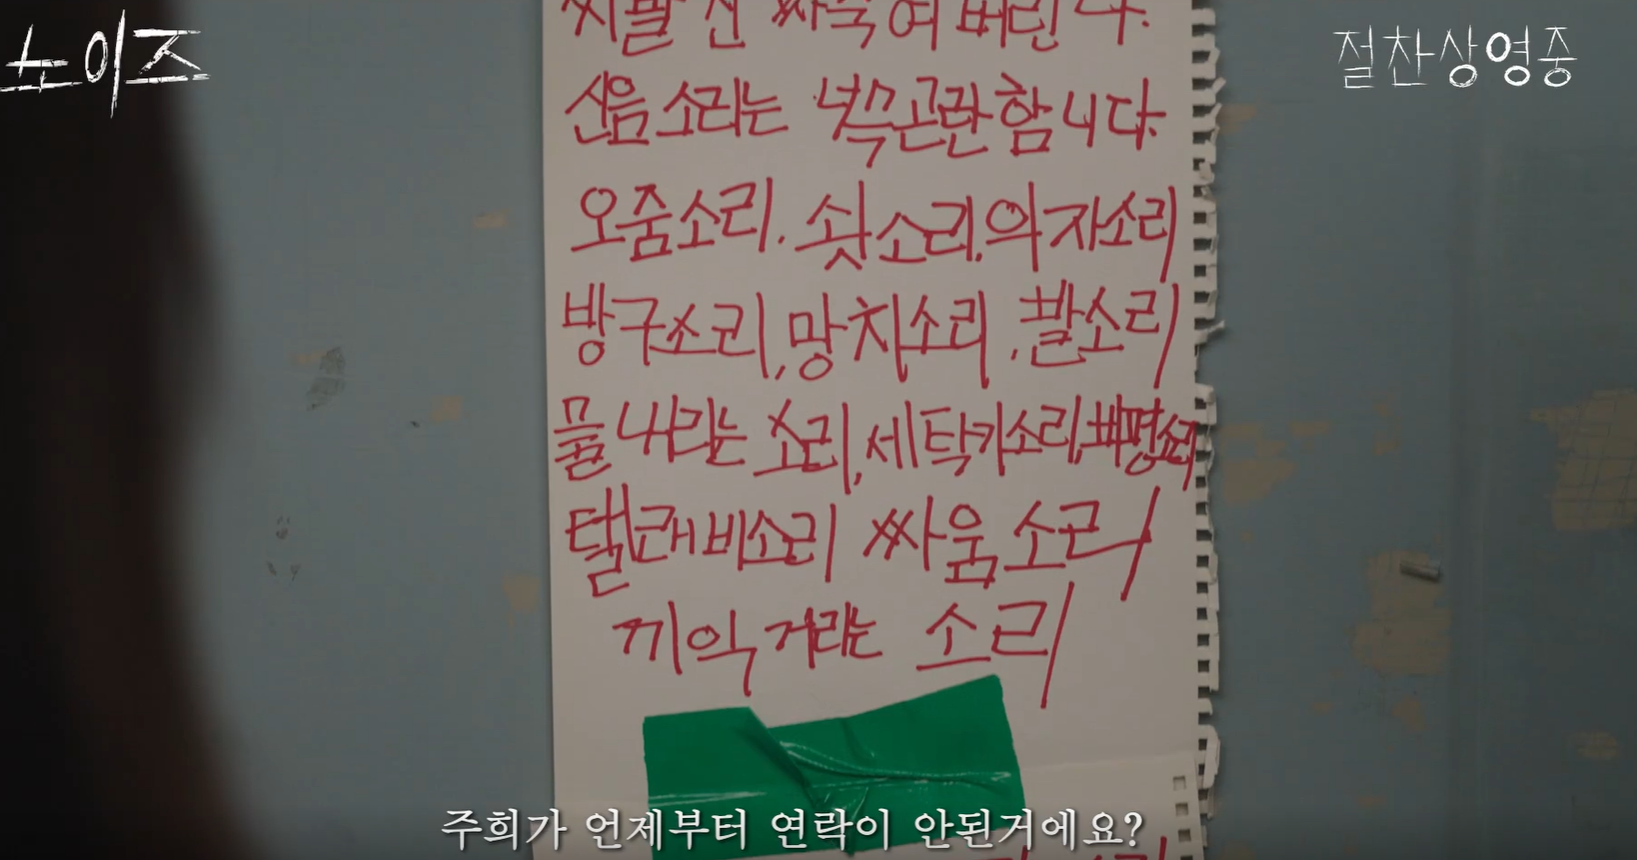 노이즈
절찬상영중
씨발 싹 죽여버린다.
신음소리는 넉즈곤란함니다.
오줌소리. 쇳소리, 의자소리
방구소리, 망치소리, 발소리
물 내리는 소리, 세탁기소리, 비명소리
텔래비소리 싸움소리
끼익거리는 소리
주희가 언제부터 연락이 안된거에요?